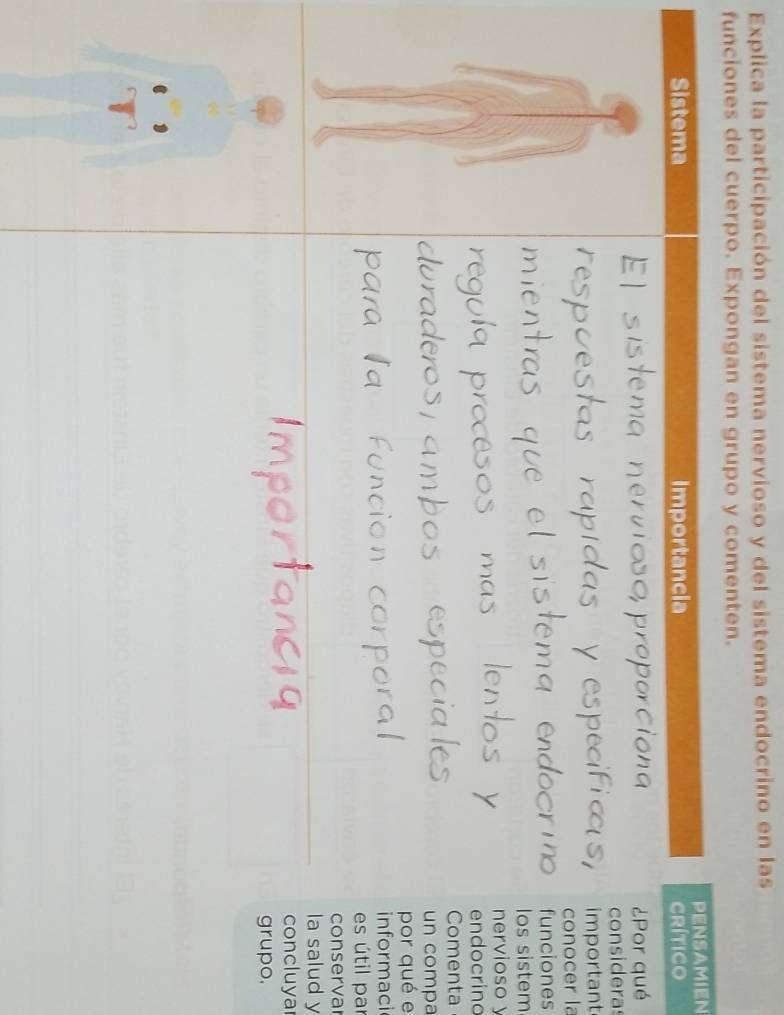 Explica la participación del sistema nervioso y del sistema endocrino en las
funciones del cuerpo. Expongan en grupo y comenten.
Sistema
Importancia
El sistema nervioso, proporciona
respuestas rapidas y especificas,
mientras que el sistema endocrino
regula procesos mas lentos y
duraderos, ambos especiales
para la funcion corporal
Importancia
PENSAMIEN
CRÍTICO
¿Por qué
consideras
important
conocer la
funciones
los sistem
nervioso y
endocrino
Comenta
un compa
por qué e
informaci
es útil par
conservar
la salud y
concluyan
grupo.